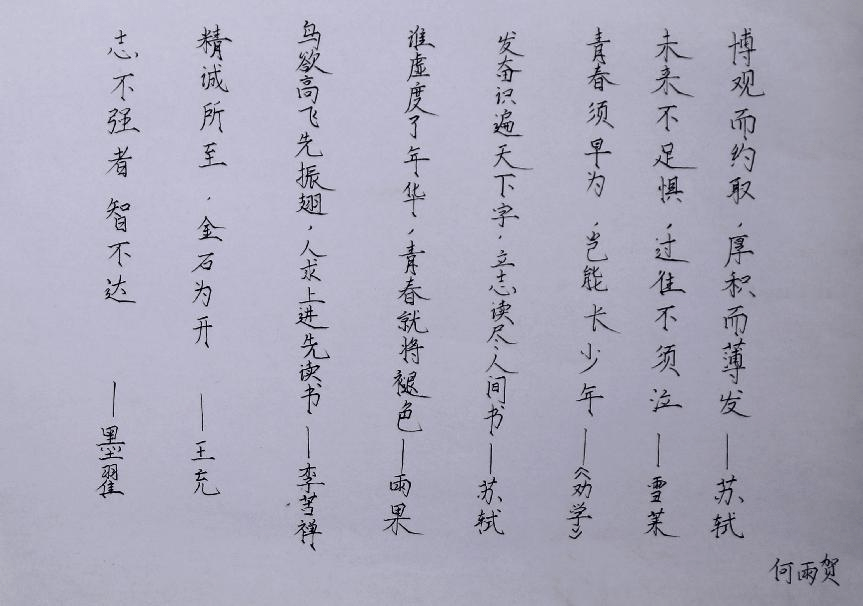 博观而约取，厚积而薄发——苏轼
未来不足惧，过往不须泣——雪莱
青春须早为，岂能长少年——《劝学》
发奋识遍天下字，立志读尽人间书——苏轼
谁虚度了年华，青春就将褪色——雨果
鸟欲高飞先振翅，人求上进先读书——李苦禅
精诚所至，金石为开——王充
志不强者智不达——墨翟
何雨贺